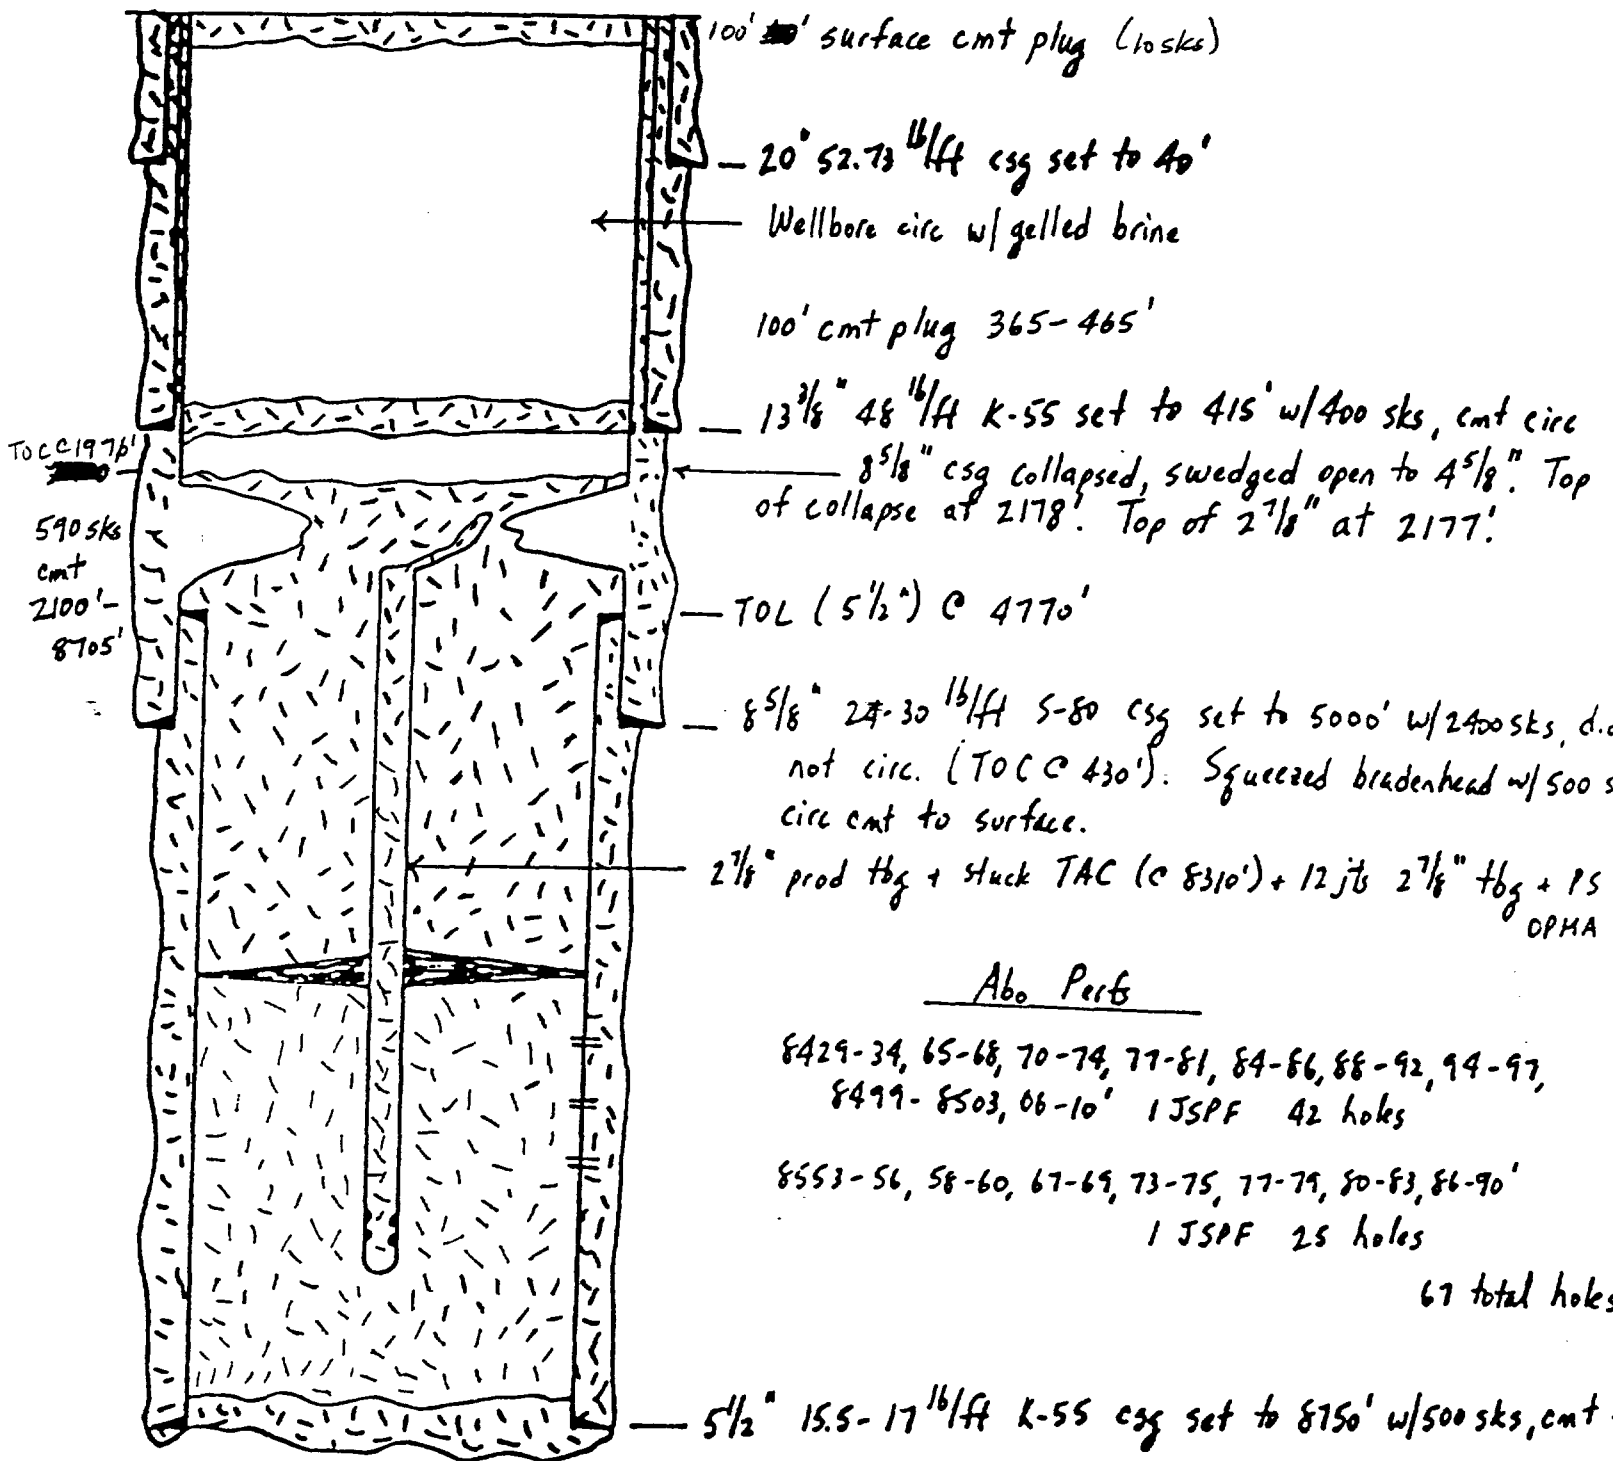 100' surface cmt plug (10sks)
20" 52.73 lb/ft csg set to 40'
Wellbore circ w/ gelled brine
100' cmt plug 365-465'
13 3/8" 48 lb/ft K-55 set to 415' w/400 sks, cmt circ
TOC C 1970'
8 5/8" csg collapsed, swedged open to 4 5/8". Top
of collapse at 2178'. Top of 2 7/8" at 2177'.
590 sks
cmt
2100'-
8705'
TOL (5 1/2") C 4770'
8 5/8" 24-30 lb/ft S-80 csg set to 5000' w/2400 sks,
not circ. (TOC C 430'). Squeezed bradenhead w/ 500
circ cmt to surface.
2 7/8" prod tbg + stuck TAC (C 8310') + 12 jts 2 7/8" tbg + PS
OPMA
Abo Perfs
8429-34, 65-68, 70-74, 77-81, 84-86, 88-92, 94-97,
8499-8503, 06-10' 1 JSPF 42 holes
8553-56, 58-60, 67-69, 73-75, 77-79, 80-83, 86-90'
1 JSPF 25 holes
67 total holes
5 1/2" 15.5-17 lb/ft K-55 csg set to 8750' w/500 sks, cmt